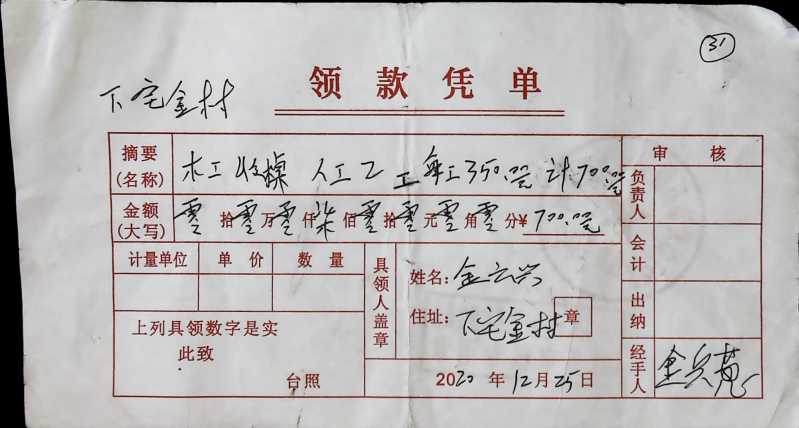 31
领款凭单
下宅金村
摘要
(名称)
木工收 人工乙工每工350.00元 计700.00元
审核
金额
(大写)
零拾零万零仟柒佰零拾零元零角零分¥700.00元
负责人
计量单位 单价 数量
具领人盖章
姓名:金云兴
会计
住址:下宅金村 章
出纳
上列具领数字是实
此致
台照
2020年12月25日
经手人 金